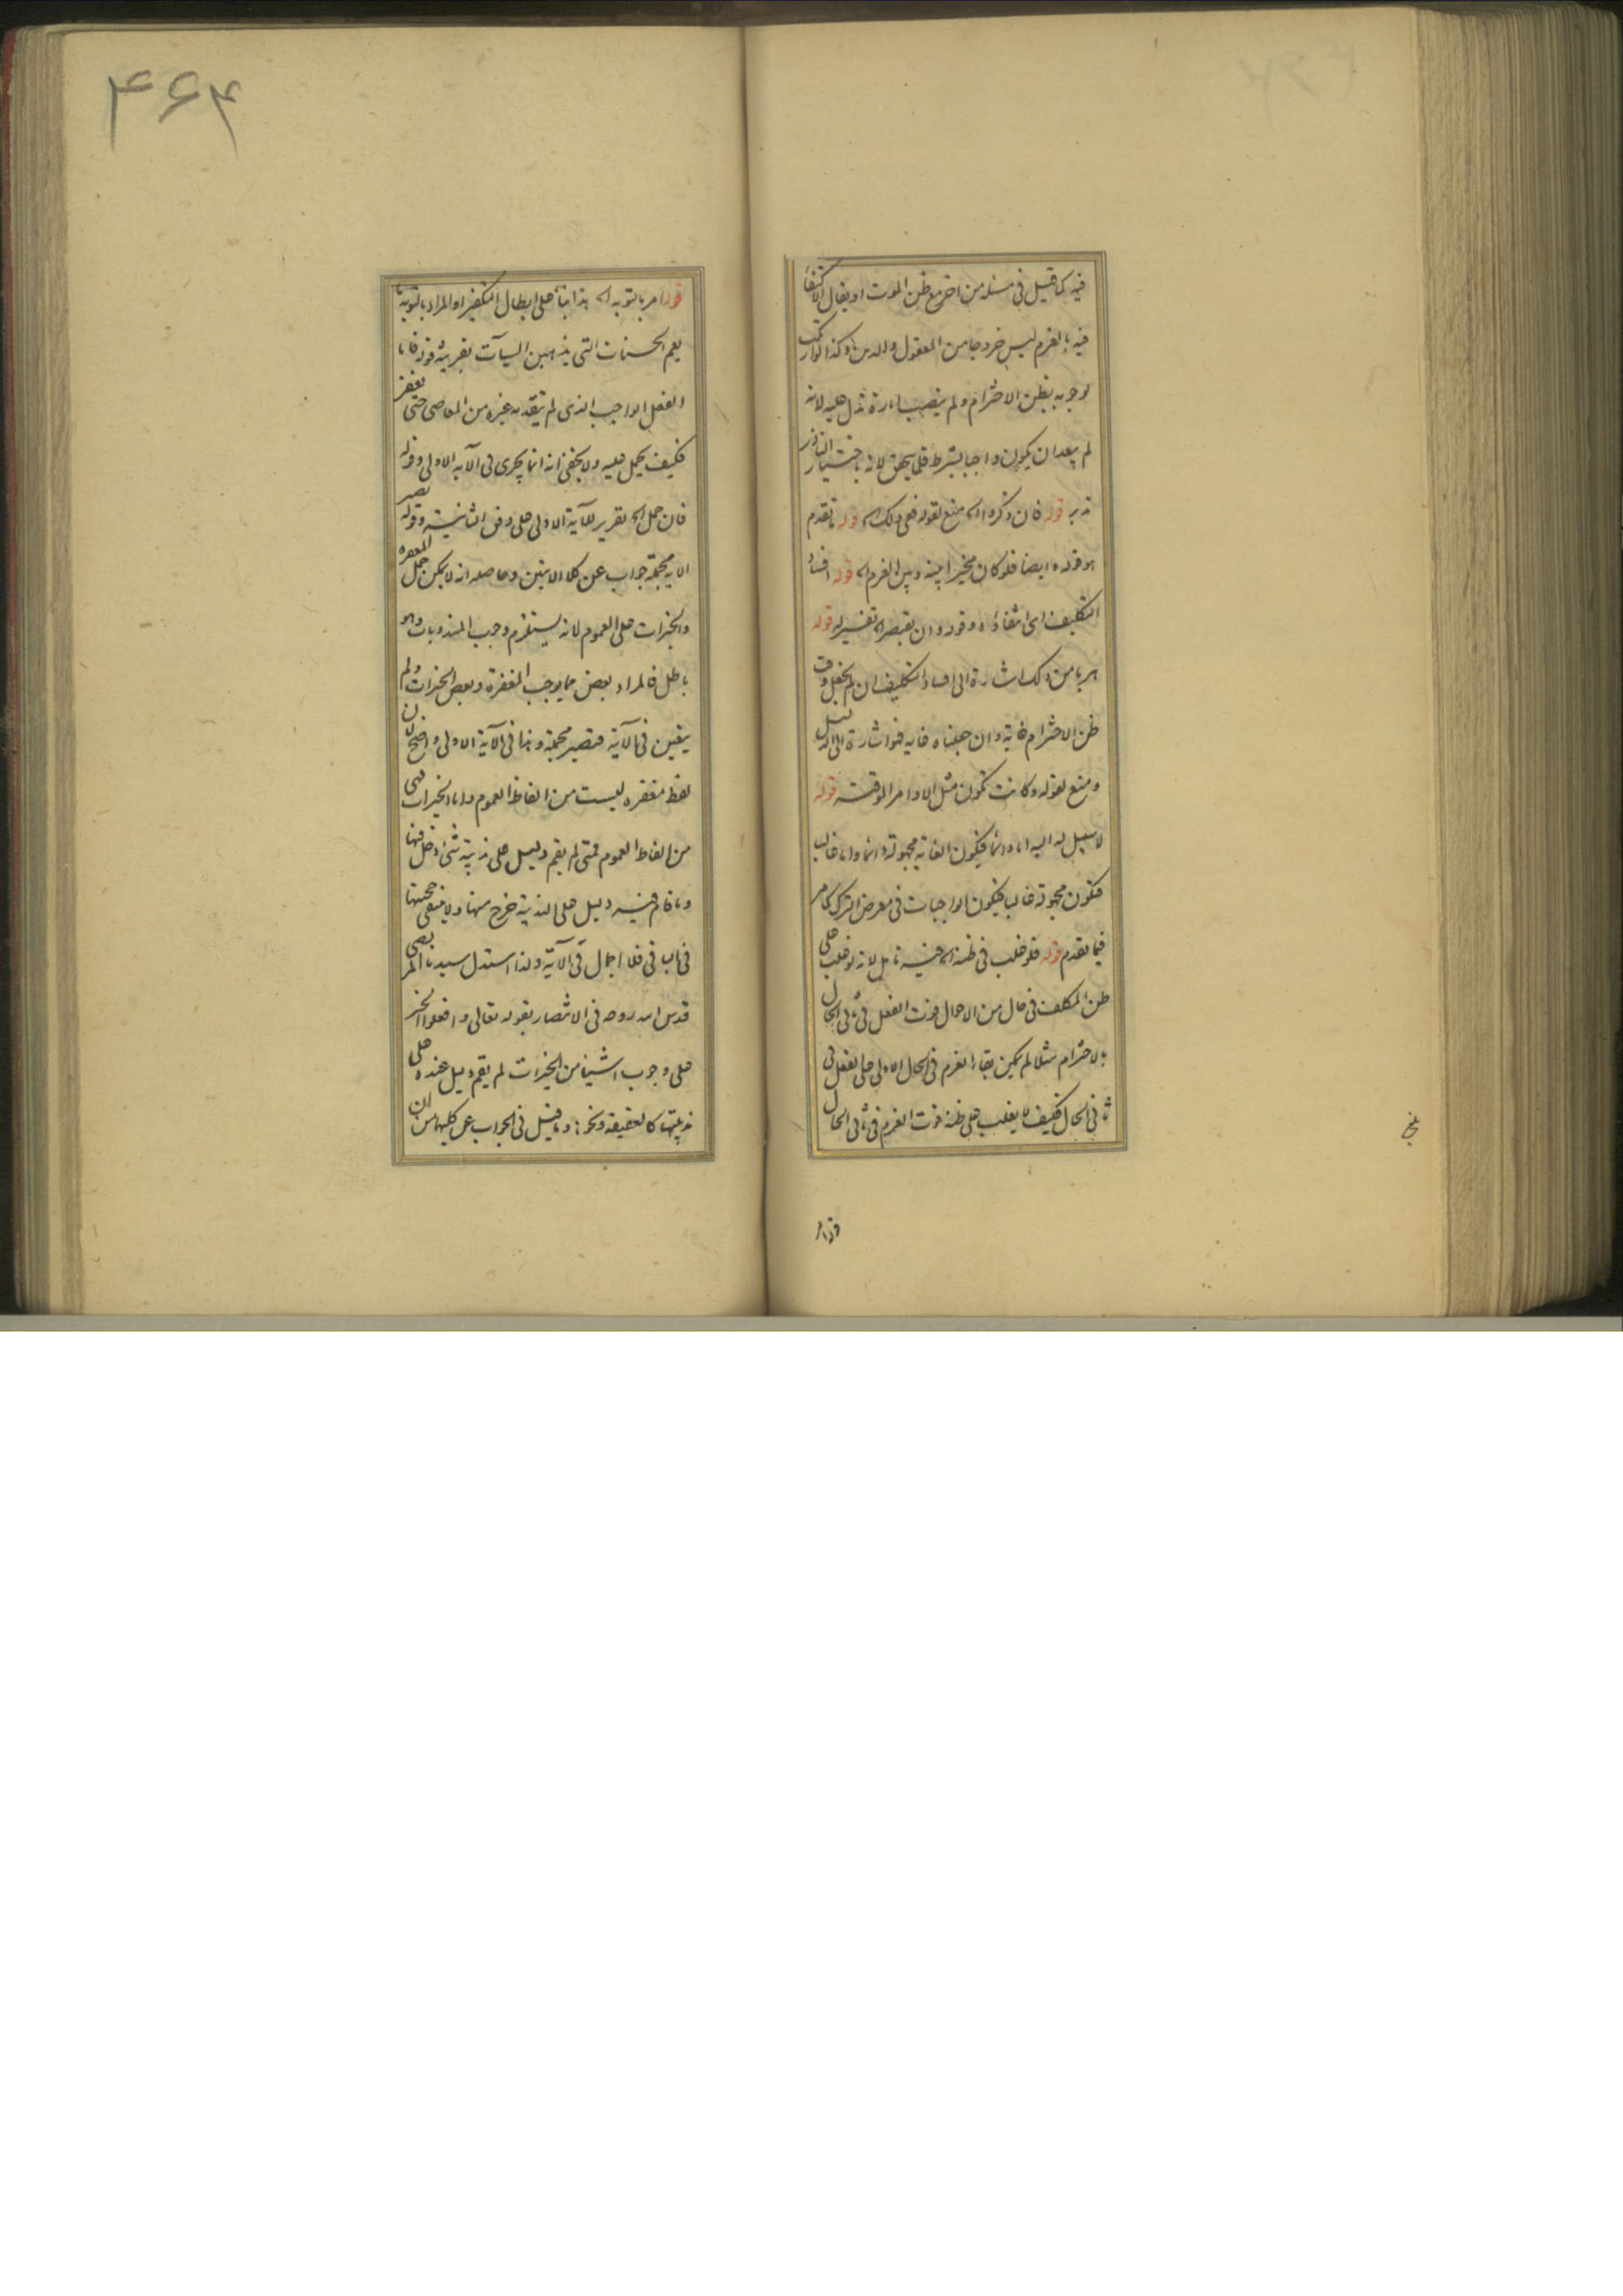 فيه كما قيل فى مسئلة من اخر مع ظن الموت او يقال الاكتفا
فيه بالعزم ليس خروجا من المعقول والدين وكذا لو ارتكب
لوجوبه بظن الاخترام ولم ينصب امارة تدل عليه لانه
لم يبعد ان يكون واجبا بشرط قلما يتحقق لانه باختيار النادر
تدبر قوله فان ذكروا اه منع لقوله ففى ذلك اه قوله ما تقدم
هو قوله وايضا فلو كان مخيرا بينه وبين العزم اه قوله افساد
التكليف اى انتفاؤه وقوله وان يقتصر اه تفسير له قوله
هربا من ذلك اشارة الى افساد التكليف ان لم يجعل وقت
ظن الاخترام غاية وان جعلناه غايه فهو اشارة الى الدليل
ومنع لقوله وكانت تكون مثل الاوامر الموقتة قوله
لا سبيل له اليه اما دائما فيكون الغاية مجهولة دائما واما غالبا
فتكون مجهولة غالبا فيكون الواجبات فى معرض الترك كما مر
فيما تقدم قوله فلو غلب فى ظنه اه فيه تامل لانه لو غلب على
ظن المكلف فى حال من الاحوال فوت الفعل فى ثانى الحال
بالاخترام مثلا لم يمكن بقاء العزم فى الحال الاولى على الفعل فى
ثانى الحال فكيف لا يغلب على ظنه فوت العزم فى ثانى الحال
قوله امر
۴۶۴
قوله امر بالتوبه اه هذا بناء على ابطال التكفير او المراد بالتوبة ما
يعم الحسنات التى يذهبن السيآت بقرينة قوله فاما
الفعل الواجب الذى لم يتقدمه غيره من المعاصى حتى تغفر
فكيف يحمل عليه ولا يخفى انه انما يجرى فى الآية الاولى وقوله
فان حمل اه تقرير للآية الاولى على وفق الثانية وقوله تصير
الاية مجملة جواب عن كلا الايتين وحاصله انه لا يمكن حمل المغفرة
والخيرات على العموم لانه يستلزم وجوب المندوبات وهو
باطل فالمراد بعض مما يوجب المغفرة وبعض الخيرات ولم
يتعين فى الآية فتصير مجملة وهذا فى الآية الاولى واضح لان
لفظ مغفره ليست من الفاظ العموم واما الخيرات فهى
من الفاظ العموم فمتى لم يقم دليل على ندبية شئ دخل فيها
وما قام فيه دليل على الندبية خرج منها ولا ينتفى حجيتها
فى الباقى فلا اجمال فى الآية ولذا استدل سيدنا المرتضى
قدس الله روحه فى الانتصار بقوله تعالى وافعلوا الخير
على وجوب اشياء من الخيرات لم يقم دليل عنده على
ندبيتها كالعقيقه ونحوها وما قيل فى الجواب عن كليهما من ان